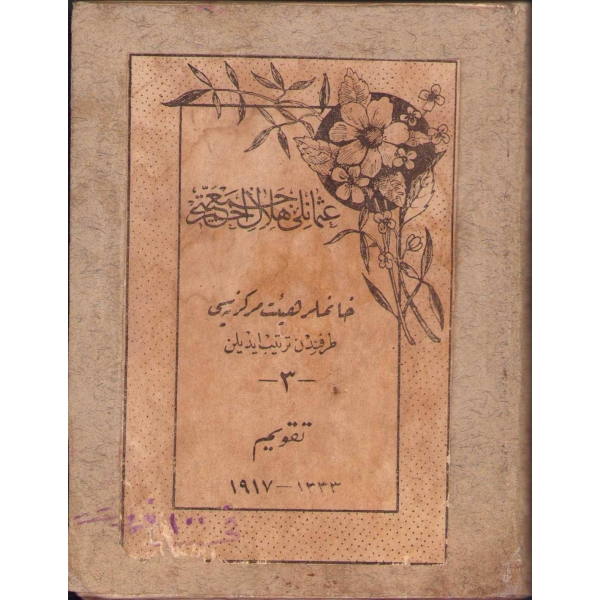 عثمانلی هلال احمر جمعیتی
خانملر هیئت مرکزیه‌سی
طرفندن ترتیب ایدیلن
— ٣ —
تقویم
١٣٣٣ — ١٩١٧
١٠٠